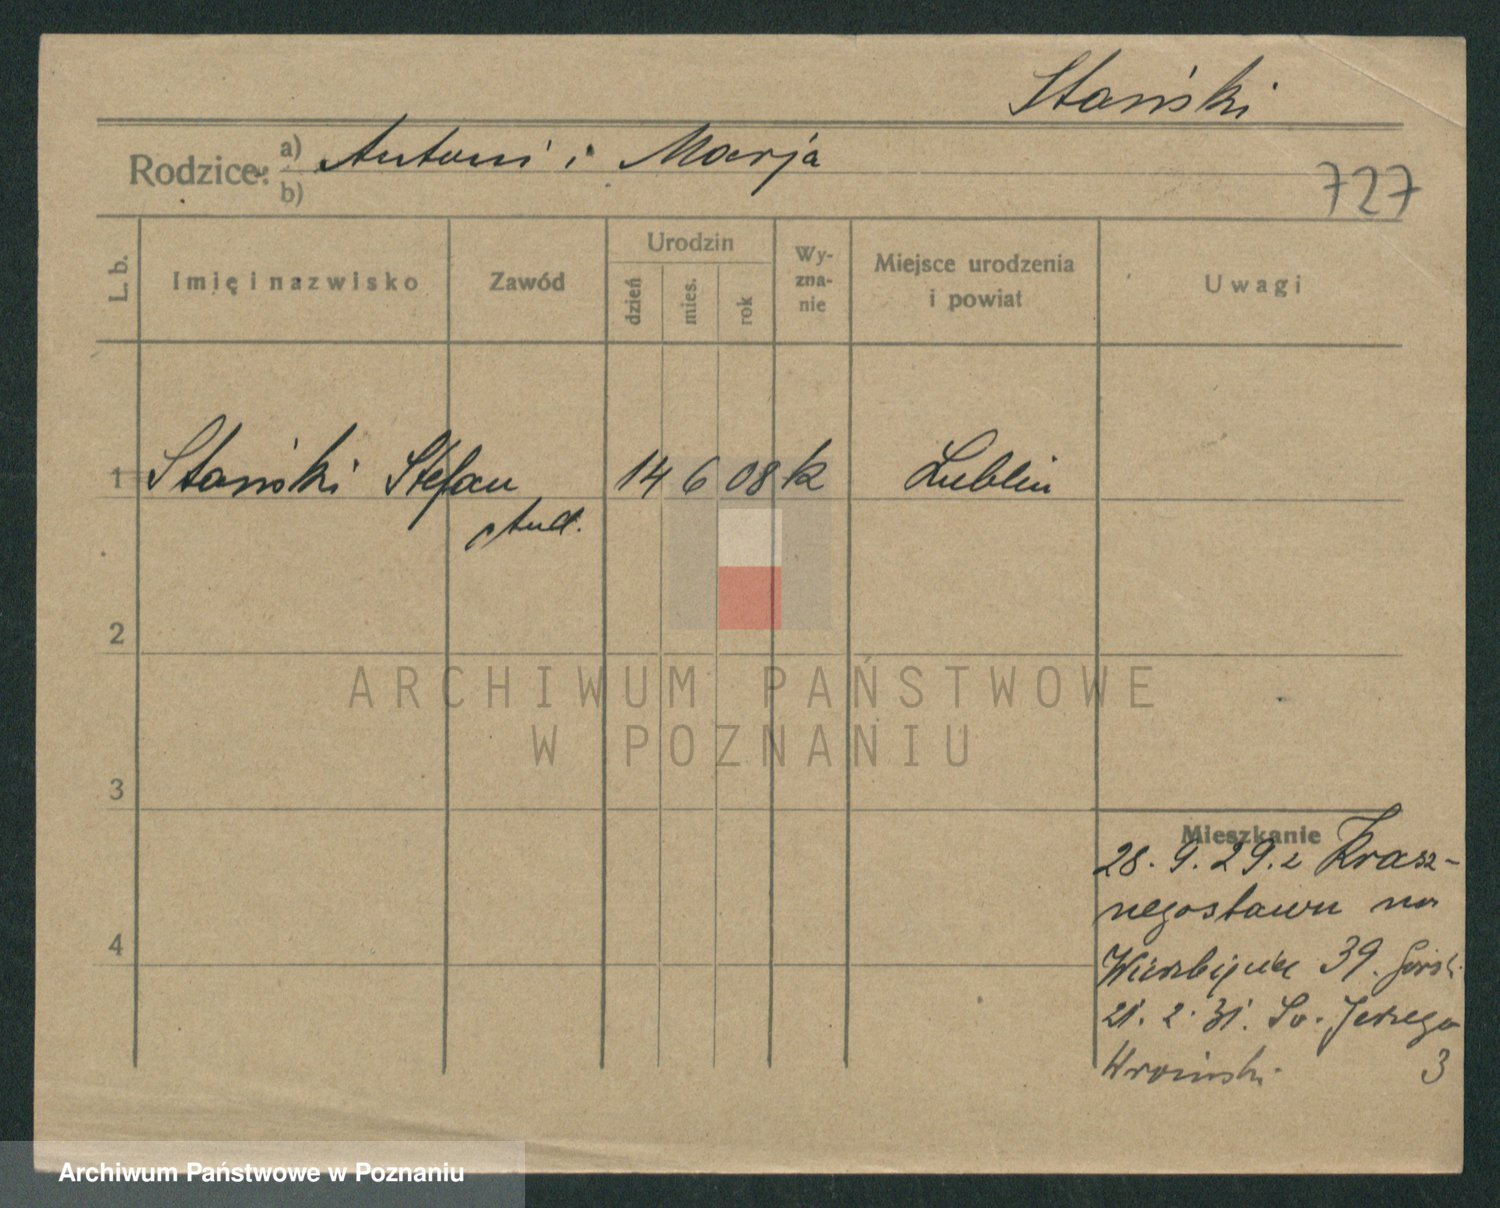 Stański
Rodzice: a) Antoni i Marja
b)
727
L. b.
Imię i nazwisko
Zawód
Urodzin
dzień
mies.
rok
Wy-
zna-
nie
Miejsce urodzenia
i powiat
Uwagi
1 Stański Stefan 14 6 08 k Lublin
stud.
2
ARCHIWUM PAŃSTWOWE
W POZNANIU
3
Mieszkanie
28. 9. 29. z Krasz-
negostawu na
39.
4
21. 2. 31. Św. Jerzego
3
Archiwum Państwowe w Poznaniu